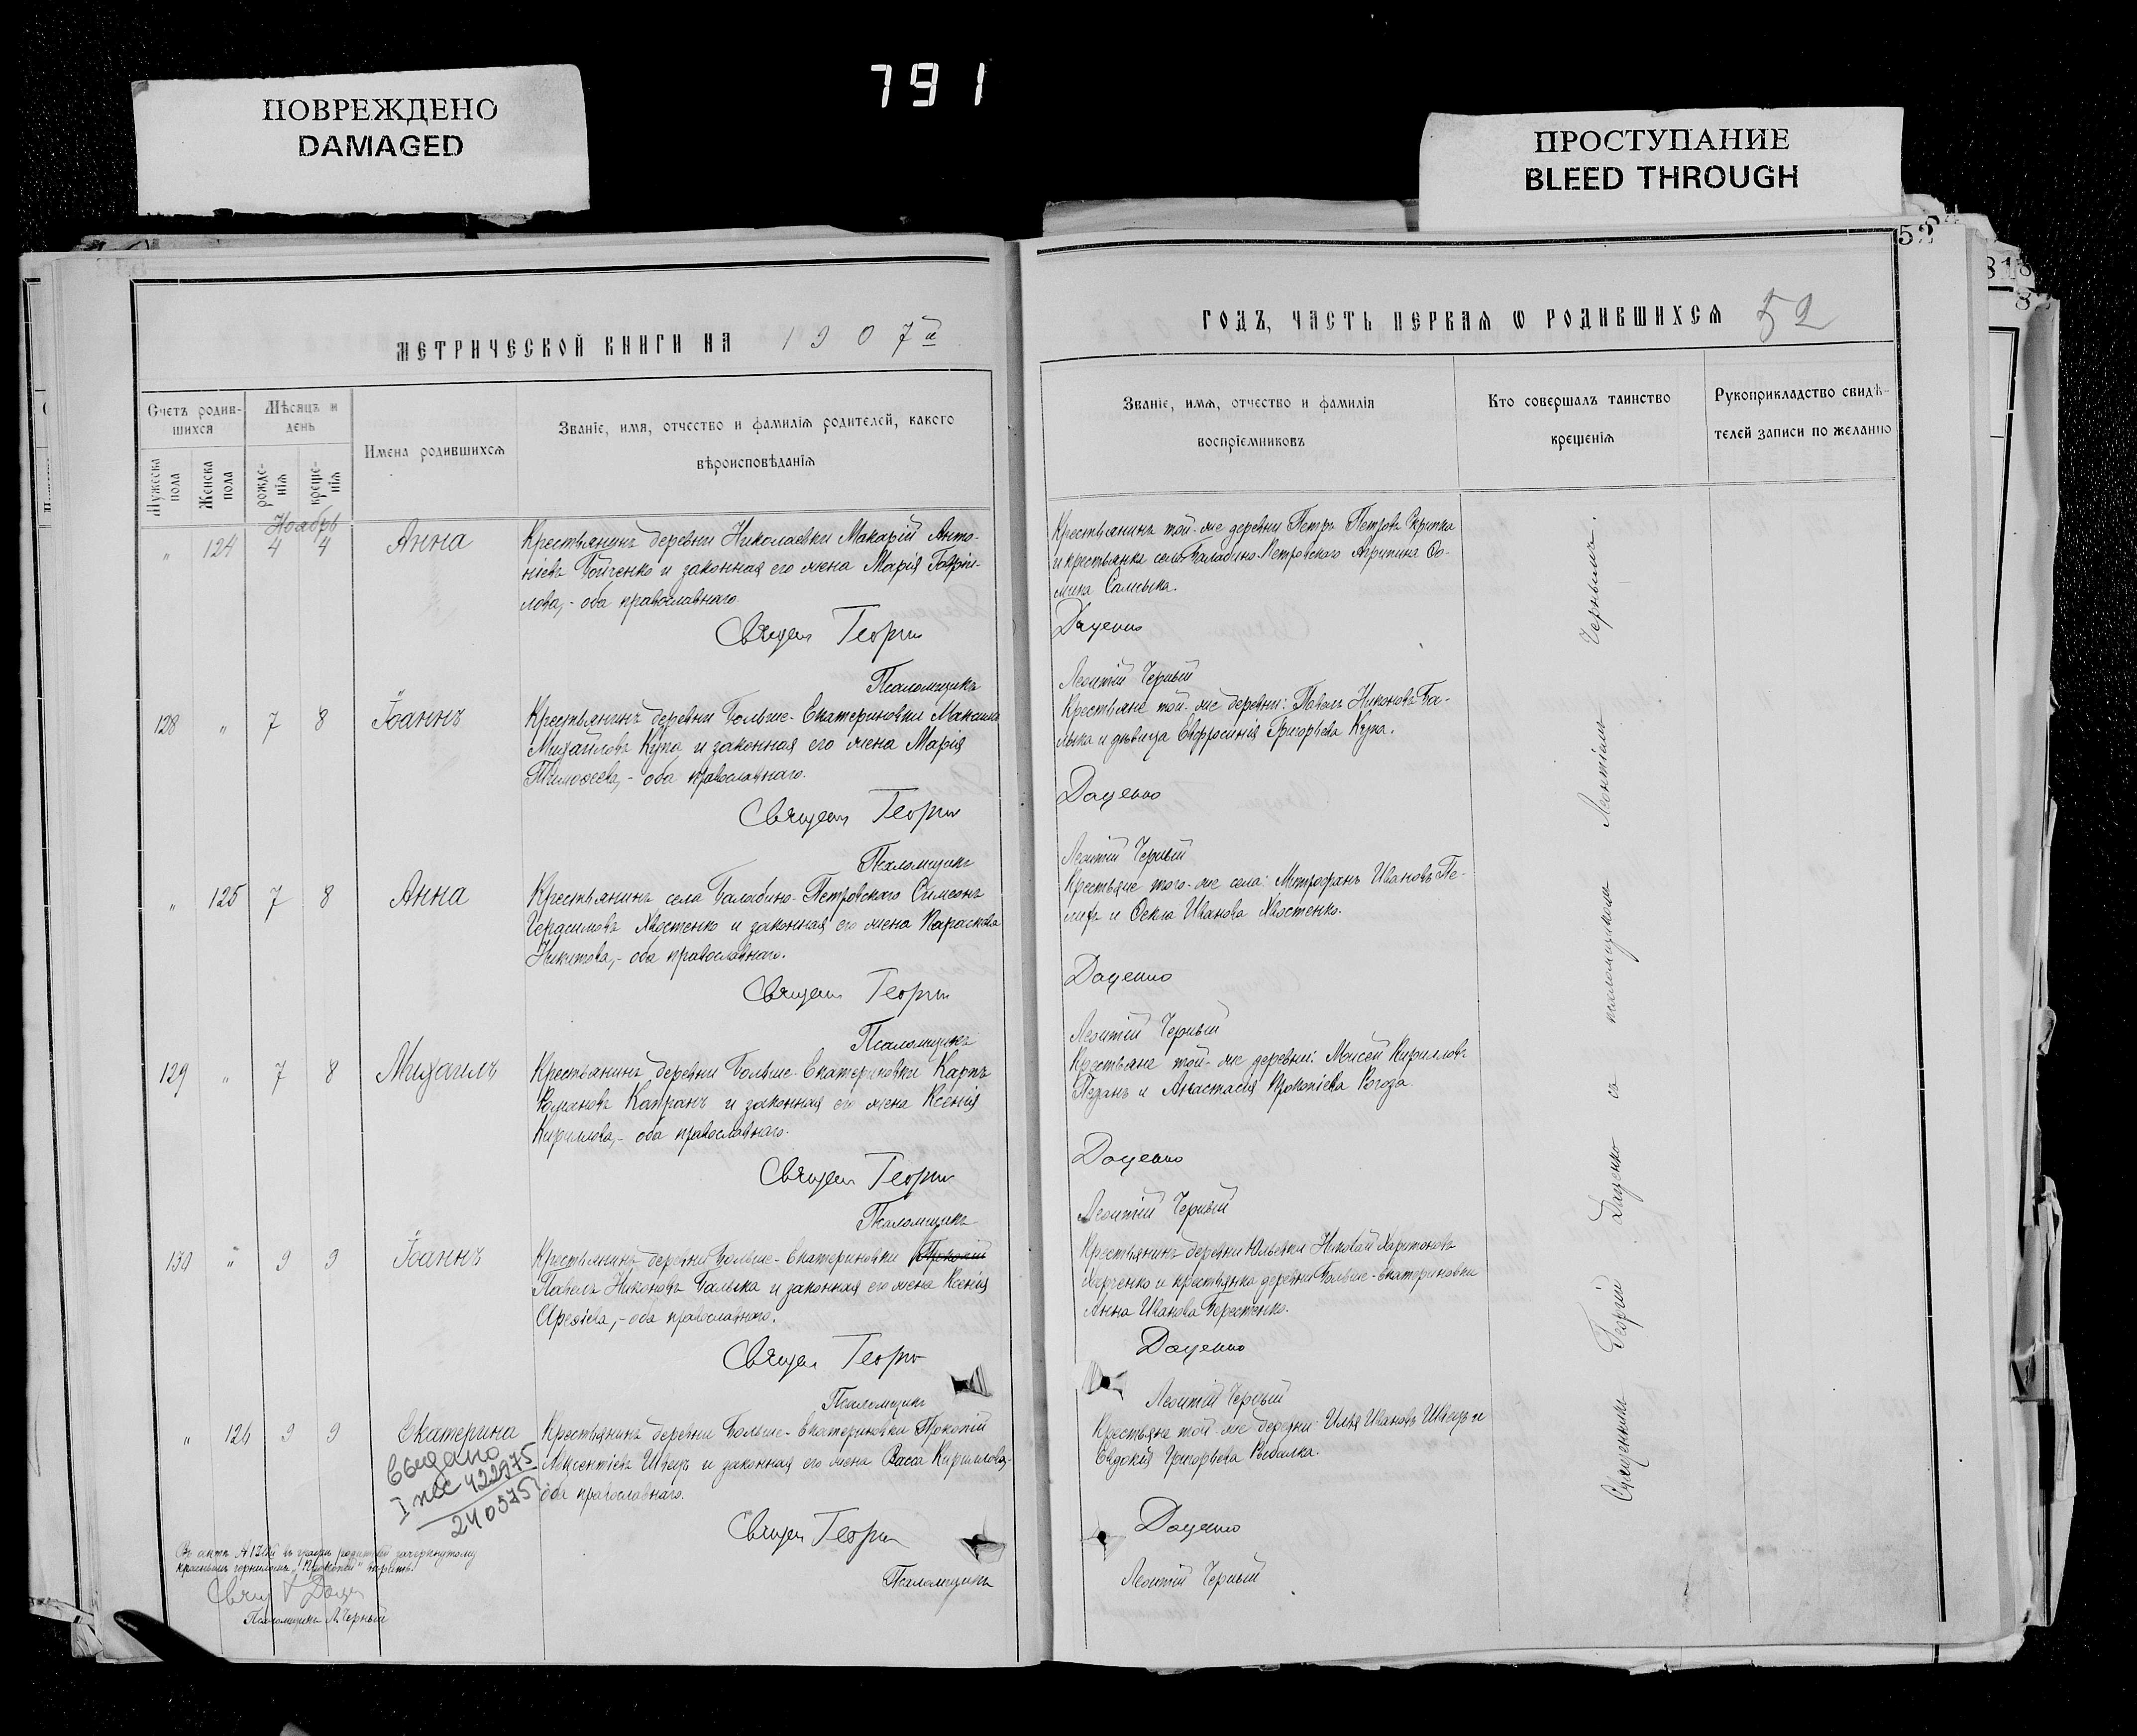 791
ПОВРЕЖДЕНО
DAMAGED
ПРОСТУПАНИЕ
BLEED THROUGH
52
МЕТРИЧЕСКОЙ КНИГИ НА 1907й
Счетъ родив-
шихся
Мѣсяцъ и
день
Мужеска
пола
Женска
пола
рожде-
нія
креще-
нія
Имена родившихся
Званіе, имя, отчество и фамилія родителей, какого
вѣроисповѣданія
Ноябрь
" 124 4 4 Анна
Крестьянинъ деревни Николаевки Макарій Анто-
ніевъ Бойченко и законная его жена Марія Гаврі-
лова,- оба православнаго.
Священ Георгій
Псаломщикъ
128 " 7 8 Іоаннъ
Крестьянинъ деревни Больше-Екатериновки Максимъ
Михайловъ Купа и законная его жена Марія
Тимоѳеева,- оба православнаго.
Священ Георгій
Псаломщикъ
" 125 7 8 Анна
Крестьянинъ села Балабино-Петровского Симеонъ
Герасимовъ Хвостенко и законная его жена Параскева
Никитова,- оба православнаго.
Священ Георгій
Псаломщикъ
129 " 7 8 Михаилъ
Крестьянинъ деревни Больше-Екатериновки Карпъ
Романовъ Капранъ и законная его жена Ксенія
Кириллова,- оба православнаго.
Священ Георгій
Псаломщикъ
130 " 9 9 Іоаннъ
Крестьянинъ деревни Больше-Екатериновки Прокопій
Павелъ Никоновъ Балыка и законная его жена Ксенія
Ареѳіева,- оба православнаго.
Священ Георгій
Псаломщикъ
" 126 9 9 Екатерина
Крестьянинъ деревни Больше-Екатериновки Прокопій
Авксентіевъ Швецъ и законная его жена Васса Кириллова,-
оба православнаго.
Выдано
422975
240575
Священ Георгій
Псаломщикъ
Въ актѣ №130й въ графѣ родителей зачеркнутому
красными чернилами „Прокопій"
Свящ Г Доце
Псаломщикъ Л. Черный
ГОДЪ, ЧАСТЬ ПЕРВАЯ Ѡ РОДИВШИХСЯ 52
Званіе, имя, отчество и фамилія
воспріемниковъ
Кто совершалъ таинство
крещенія
Рукоприкладство свидѣ-
телей записи по желанію
Крестьянинъ той-же деревни Петръ Петровъ Скрипка
и крестьянка села Балабино-Петровского Агрипина Ѳо-
мина Самсыка.
Доценко
Леонтій Черный
Крестьяне той-же деревни: Павелъ Никоновъ Ба-
лыка и дѣвица Евфросинія Григорьева Купа.
Доценко
Леонтій Черный
Крестьяне того-же села: Митрофанъ Ивановъ
и Ѳекла Иванова Хвостенко.
Доценко
Леонтій Черный
Крестьяне той-же деревни: Моисей Кирилловъ
Педанъ и Анастасія Прокопіева Рогоза.
Доценко
Леонтій Черный
Крестьянинъ деревни Юльевки Николай Харитоновъ
Харченко и крестьянка деревни Больше-Екатериновки
Анна Иванова Берестенко.
Доценко
Леонтій Черный
Крестьяне той-же деревни: Илья Ивановъ Швецъ и
Евдокія Григорьева Рыбалка.
Доценко
Леонтій Черный
Священникъ Георгій Доценко съ псаломщикомъ Леонтіемъ Чернымъ.